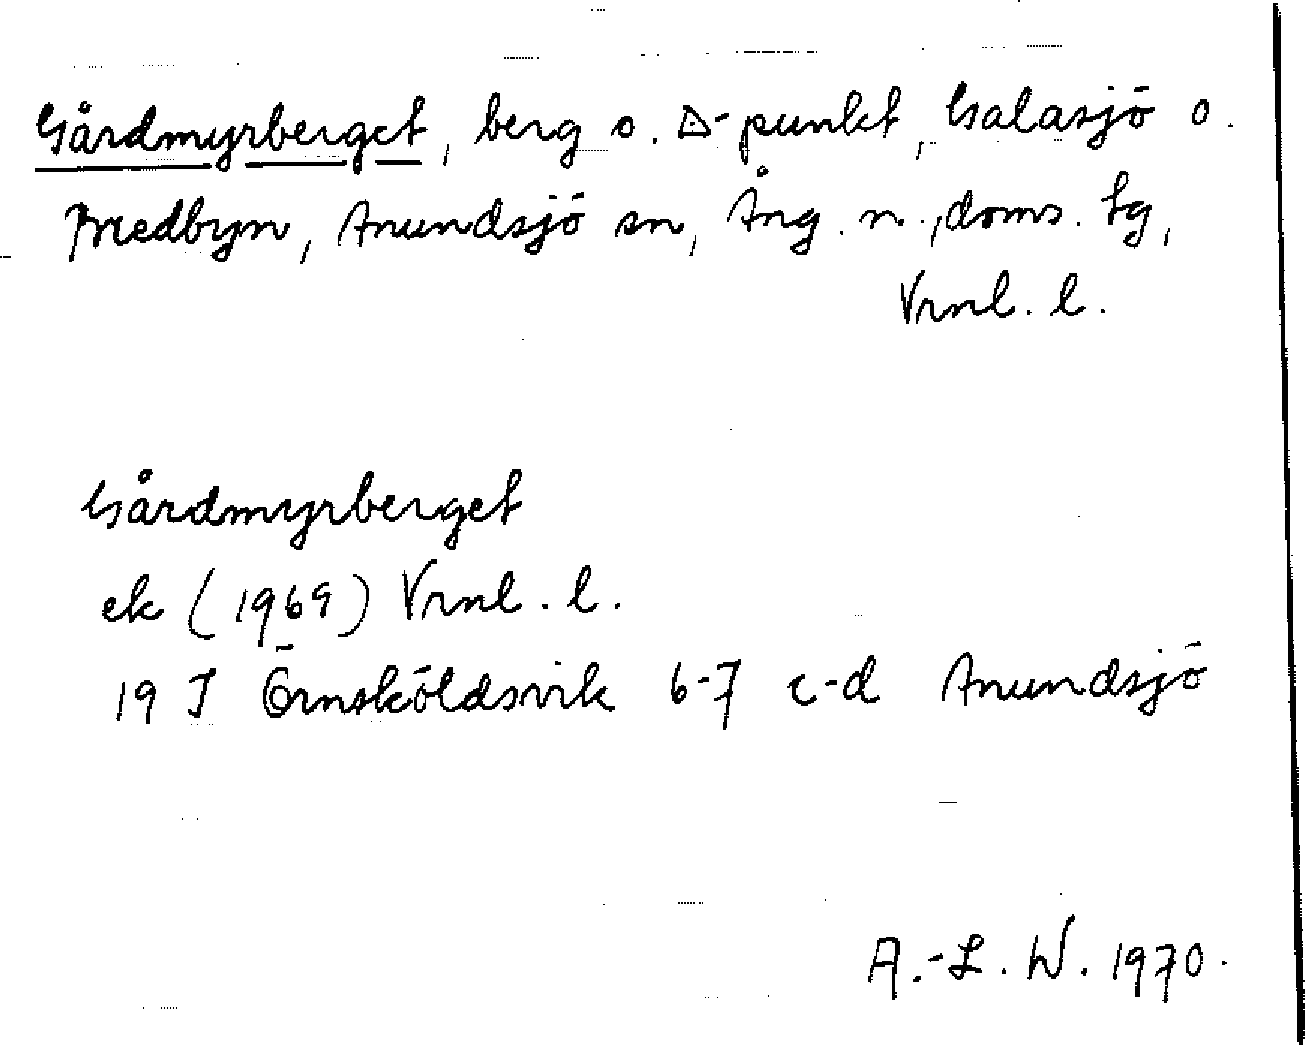 Gårdmyrberget, berg o. △-punkt, Galasjö o.
Bredbyn, Anundsjö sn, Ång. n., doms. tg,
Vrnl. l.
Gårdmyrberget
ek (1969) Vrnl. l.
19 J Örnsköldsvik 6-7 c-d Anundsjö
A.-L. W. 1970.